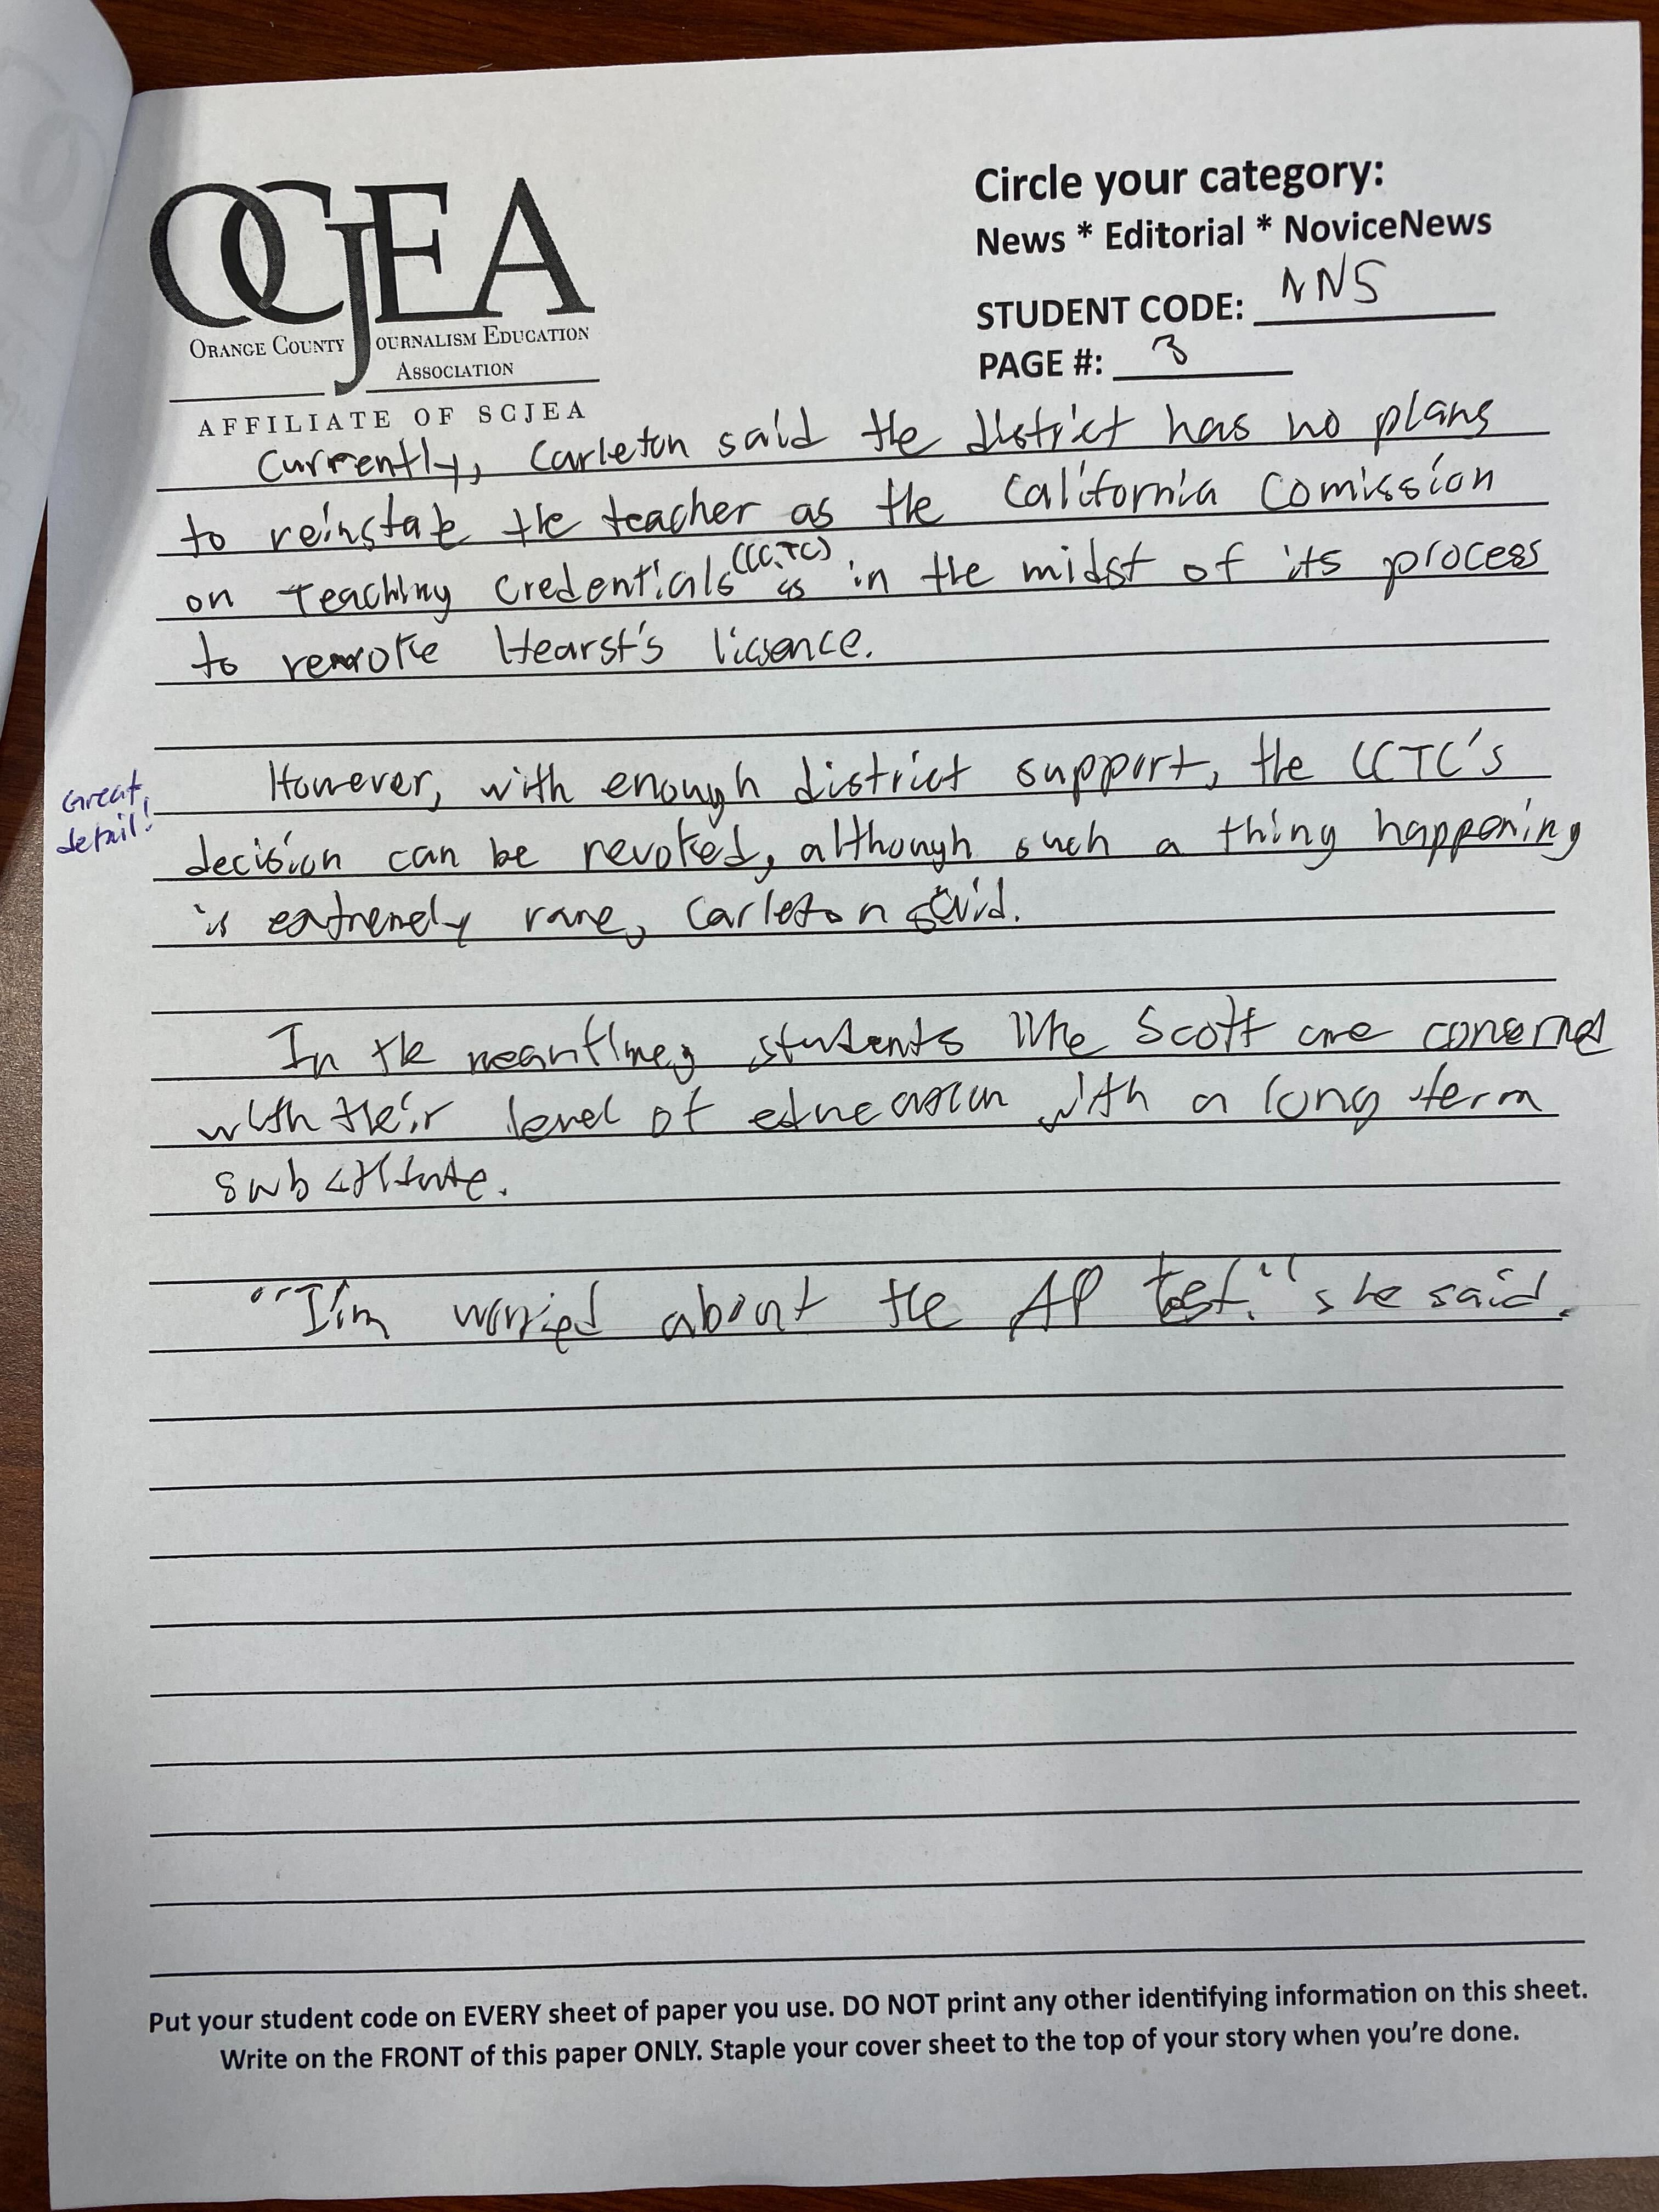 OCJEA
ORANGE COUNTY JOURNALISM EDUCATION
ASSOCIATION
AFFILIATE OF SCJEA
Circle your category:
News * Editorial * NoviceNews
STUDENT CODE: NN5
PAGE #: 3
Currently, Carleton said the district has no plans
to reinstate the teacher as the California Comission
on Teaching Credentials (CCTC) is in the midst of its process
to revoke Hearst's
However, with enough district support, the CCTC's
decision can be revoked, although such a thing happening
is extremely rare, Carleton said.
Great
detail!
In the meantime, students like Scott are concerned
with their level of education with a long term
substitute.
"I'm worried about the AP test." she said.
Put your student code on EVERY sheet of paper you use. DO NOT print any other identifying information on this sheet.
Write on the FRONT of this paper ONLY. Staple your cover sheet to the top of your story when you're done.